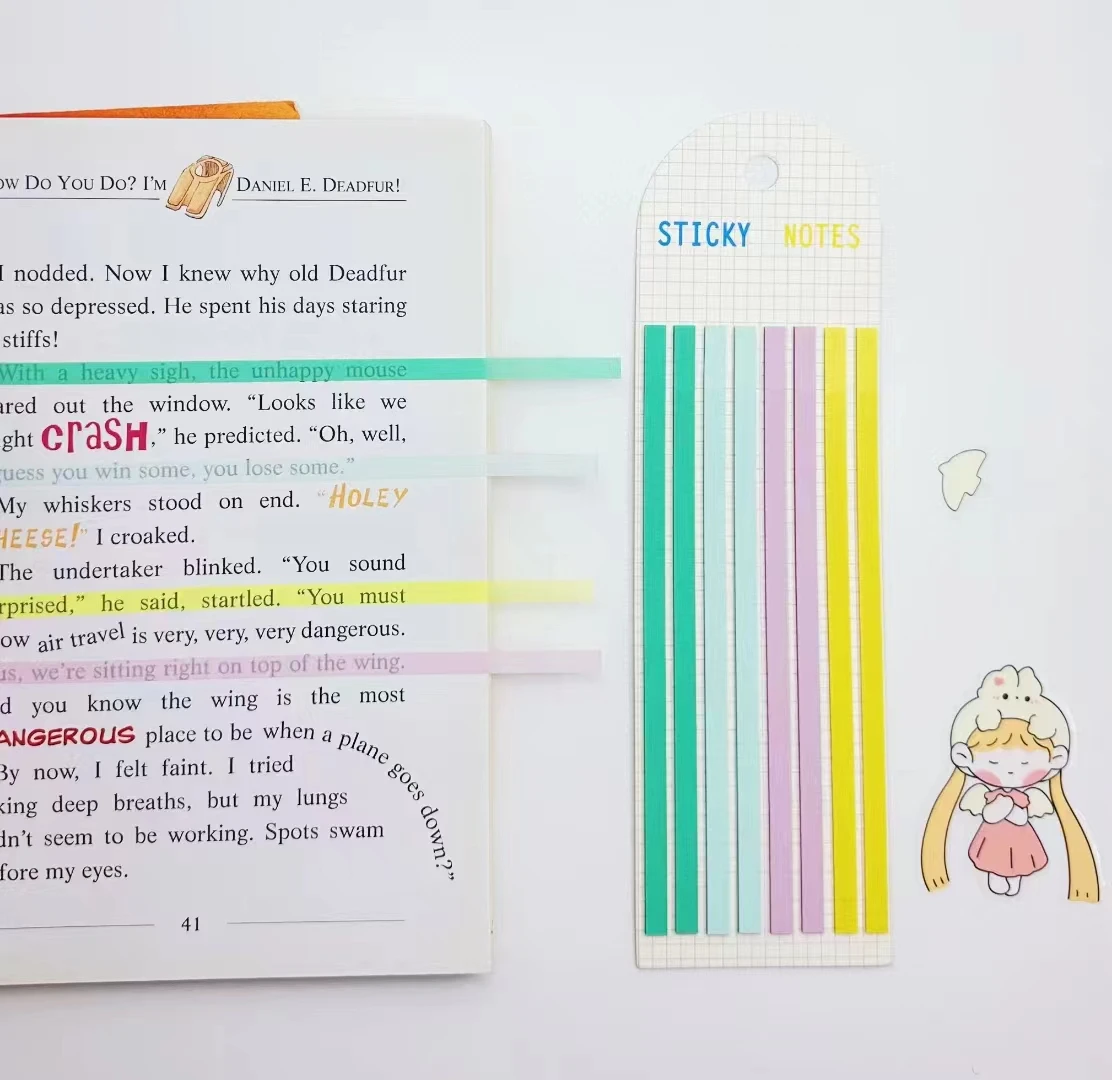 OW DO YOU DO? I'M DANIEL E. DEADFUR!
I nodded. Now I knew why old Deadfur
as so depressed. He spent his days staring
stiffs!
With a heavy sigh, the unhappy mouse
ared out the window. “Looks like we
ght CRASH,” he predicted. “Oh, well,
guess you win some, you lose some.”
My whiskers stood on end. “HOLEY
HEESE!” I croaked.
The undertaker blinked. “You sound
rprised,” he said, startled. “You must
ow air travel is very, very, very dangerous.
us, we’re sitting right on top of the wing.
d you know the wing is the most
ANGEROUS place to be when a plane goes down?”
By now, I felt faint. I tried
king deep breaths, but my lungs
dn’t seem to be working. Spots swam
fore my eyes.
41
STICKY NOTES